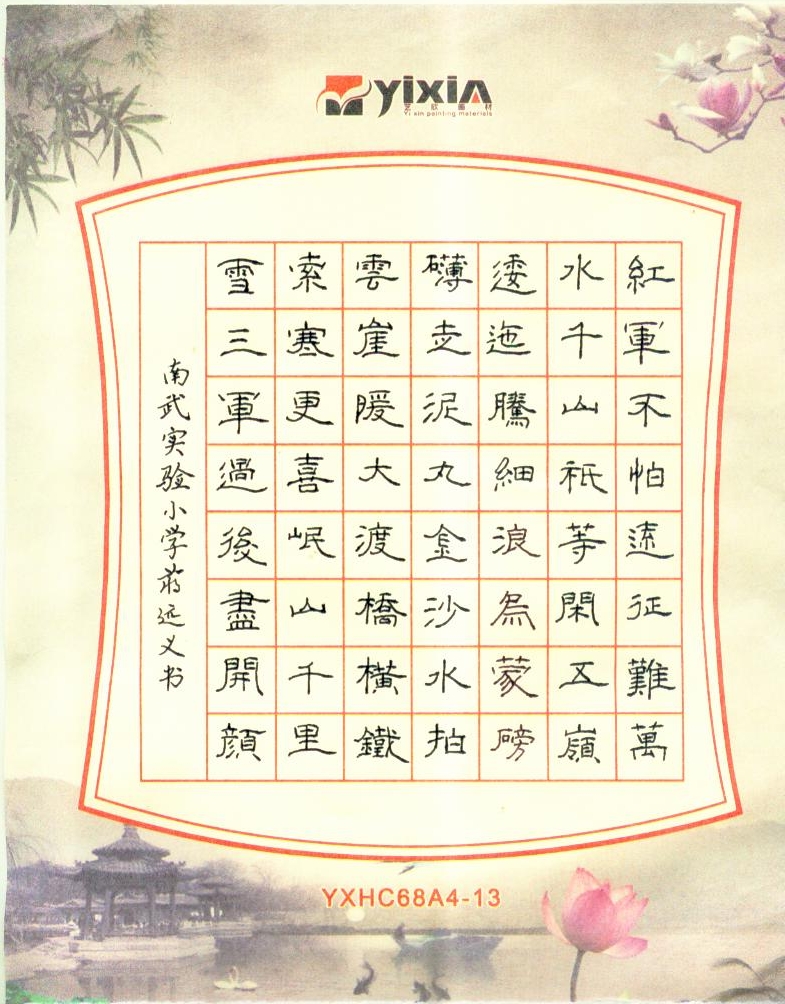 yixin
艺欣画材
Yi xin painting materials
紅軍不怕遠征難萬
水千山祇等閑五嶺
逶迤騰細浪烏蒙磅
礴走泥丸金沙水拍
雲崖暖大渡橋橫鐵
索寒更喜岷山千里
雪三軍過後盡開顔
南武实验小学蒋远义书
YXHC68A4-13